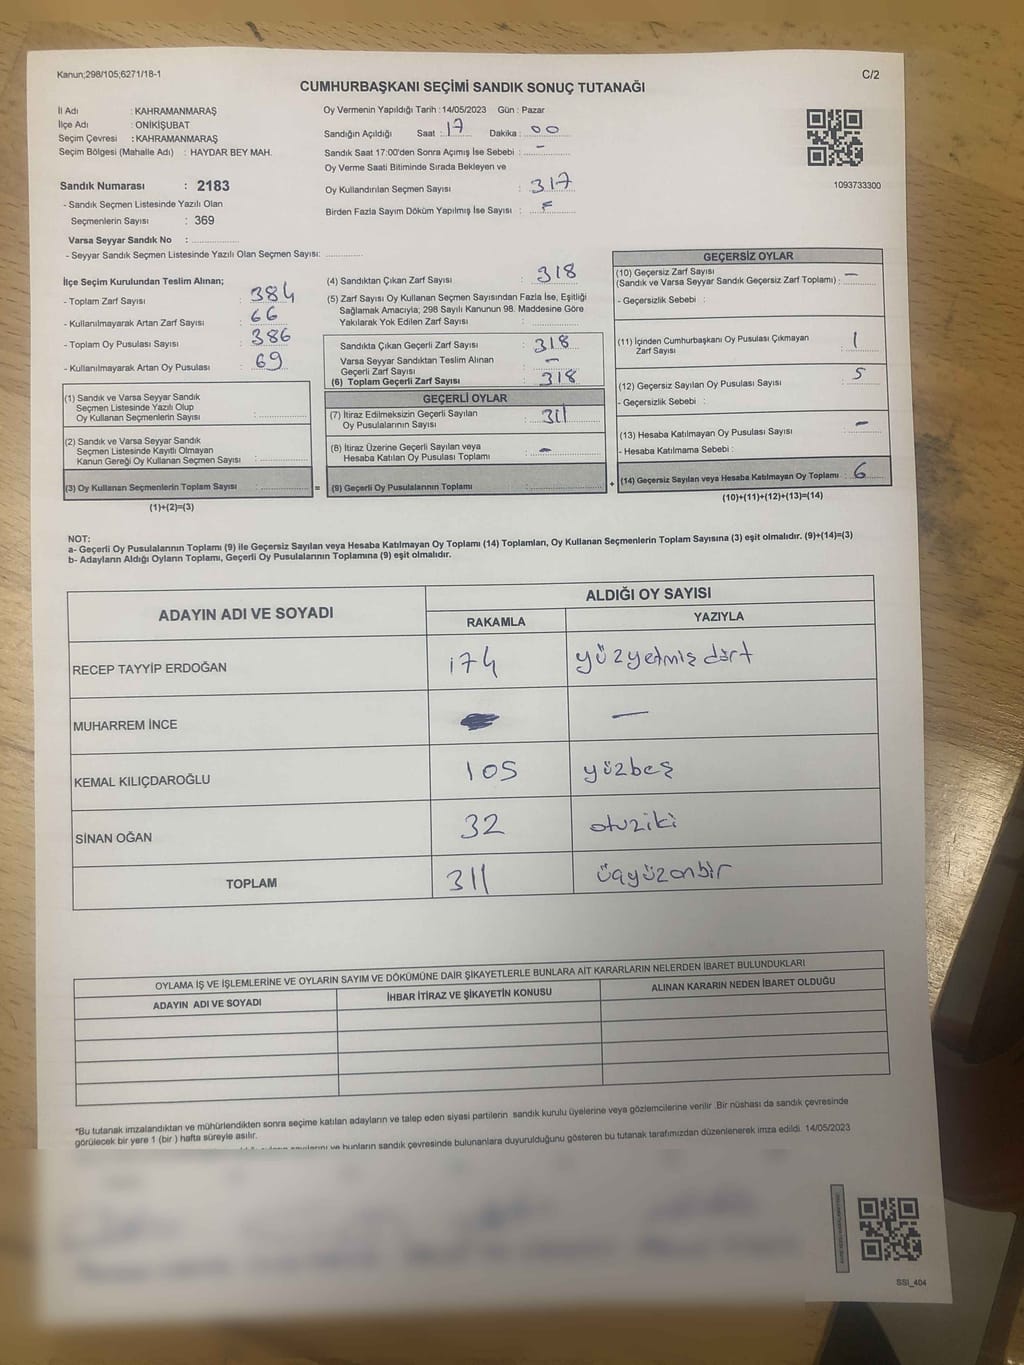 Kanun;298/105;6271/18-1
C/2
CUMHURBAŞKANI SEÇİMİ SANDIK SONUÇ TUTANAĞI
İl Adı : KAHRAMANMARAŞ
İlçe Adı : ONİKİŞUBAT
Seçim Çevresi : KAHRAMANMARAŞ
Seçim Bölgesi (Mahalle Adı) : HAYDAR BEY MAH.
Sandık Numarası : 2183
- Sandık Seçmen Listesinde Yazılı Olan
Seçmenlerin Sayısı : 369
Varsa Seyyar Sandık No :
- Seyyar Sandık Seçmen Listesinde Yazılı Olan Seçmen Sayısı:
Oy Vermenin Yapıldığı Tarih : 14/05/2023 Gün : Pazar
Sandığın Açıldığı Saat : 17 Dakika : 00
Sandık Saat 17:00'den Sonra Açımış İse Sebebi : -
Oy Verme Saati Bitiminde Sırada Bekleyen ve
Oy Kullandırılan Seçmen Sayısı : 317
Birden Fazla Sayım Döküm Yapılmış İse Sayısı :
1093733300
İlçe Seçim Kurulundan Teslim Alınan;
- Toplam Zarf Sayısı : 384
- Kullanılmayarak Artan Zarf Sayısı : 66
- Toplam Oy Pusulası Sayısı : 386
- Kullanılmayarak Artan Oy Pusulası : 69
(1) Sandık ve Varsa Seyyar Sandık
Seçmen Listesinde Yazılı Olup
Oy Kullanan Seçmenlerin Sayısı :
(2) Sandık ve Varsa Seyyar Sandık
Seçmen Listesinde Kayıtlı Olmayan
Kanun Gereği Oy Kullanan Seçmen Sayısı :
(3) Oy Kullanan Seçmenlerin Toplam Sayısı : =
(1)+(2)=(3)
(4) Sandıktan Çıkan Zarf Sayısı : 318
(5) Zarf Sayısı Oy Kullanan Seçmen Sayısından Fazla İse, Eşitliği
Sağlamak Amacıyla; 298 Sayılı Kanunun 98. Maddesine Göre
Yakılarak Yok Edilen Zarf Sayısı :
Sandıkta Çıkan Geçerli Zarf Sayısı : 318
Varsa Seyyar Sandıktan Teslim Alınan
Geçerli Zarf Sayısı : -
(6) Toplam Geçerli Zarf Sayısı : 318
GEÇERLİ OYLAR
(7) İtiraz Edilmeksizin Geçerli Sayılan
Oy Pusulalarının Sayısı : 311
(8) İtiraz Üzerine Geçerli Sayılan veya
Hesaba Katılan Oy Pusulası Toplamı : -
(9) Geçerli Oy Pusulalarının Toplamı : +
GEÇERSİZ OYLAR
(10) Geçersiz Zarf Sayısı
(Sandık ve Varsa Seyyar Sandık Geçersiz Zarf Toplamı) : -
- Geçersizlik Sebebi :
(11) İçinden Cumhurbaşkanı Oy Pusulası Çıkmayan
Zarf Sayısı : 1
(12) Geçersiz Sayılan Oy Pusulası Sayısı : 5
- Geçersizlik Sebebi :
(13) Hesaba Katılmayan Oy Pusulası Sayısı : -
- Hesaba Katılmama Sebebi :
(14) Geçersiz Sayılan veya Hesaba Katılmayan Oy Toplamı : 6
(10)+(11)+(12)+(13)=(14)
NOT:
a- Geçerli Oy Pusulalarının Toplamı (9) ile Geçersiz Sayılan veya Hesaba Katılmayan Oy Toplamı (14) Toplamları, Oy Kullanan Seçmenlerin Toplam Sayısına (3) eşit olmalıdır. (9)+(14)=(3)
b- Adayların Aldığı Oyların Toplamı, Geçerli Oy Pusulalarının Toplamına (9) eşit olmalıdır.
ADAYIN ADI VE SOYADI ALDIĞI OY SAYISI
RAKAMLA YAZIYLA
RECEP TAYYİP ERDOĞAN 174 yüzyetmiş dört
MUHARREM İNCE -
KEMAL KILIÇDAROĞLU 105 yüzbeş
SİNAN OĞAN 32 otuziki
TOPLAM 311 üçyüzonbir
OYLAMA İŞ VE İŞLEMLERİNE VE OYLARIN SAYIM VE DÖKÜMÜNE DAİR ŞİKAYETLERLE BUNLARA AİT KARARLARIN NELERDEN İBARET BULUNDUKLARI
ADAYIN ADI VE SOYADI İHBAR İTİRAZ VE ŞİKAYETİN KONUSU ALINAN KARARIN NEDEN İBARET OLDUĞU
*Bu tutanak imzalandıktan ve mühürlendikten sonra seçime katılan adayların ve talep eden siyasi partilerin sandık kurulu üyelerine veya gözlemcilerine verilir .Bir nüshası da sandık çevresinde
görülecek bir yere 1 (bir ) hafta süreyle asılır.
ve bunların sandık çevresinde bulunanlara duyurulduğunu gösteren bu tutanak tarafımızdan düzenlenerek imza edildi. 14/05/2023
SSI_404